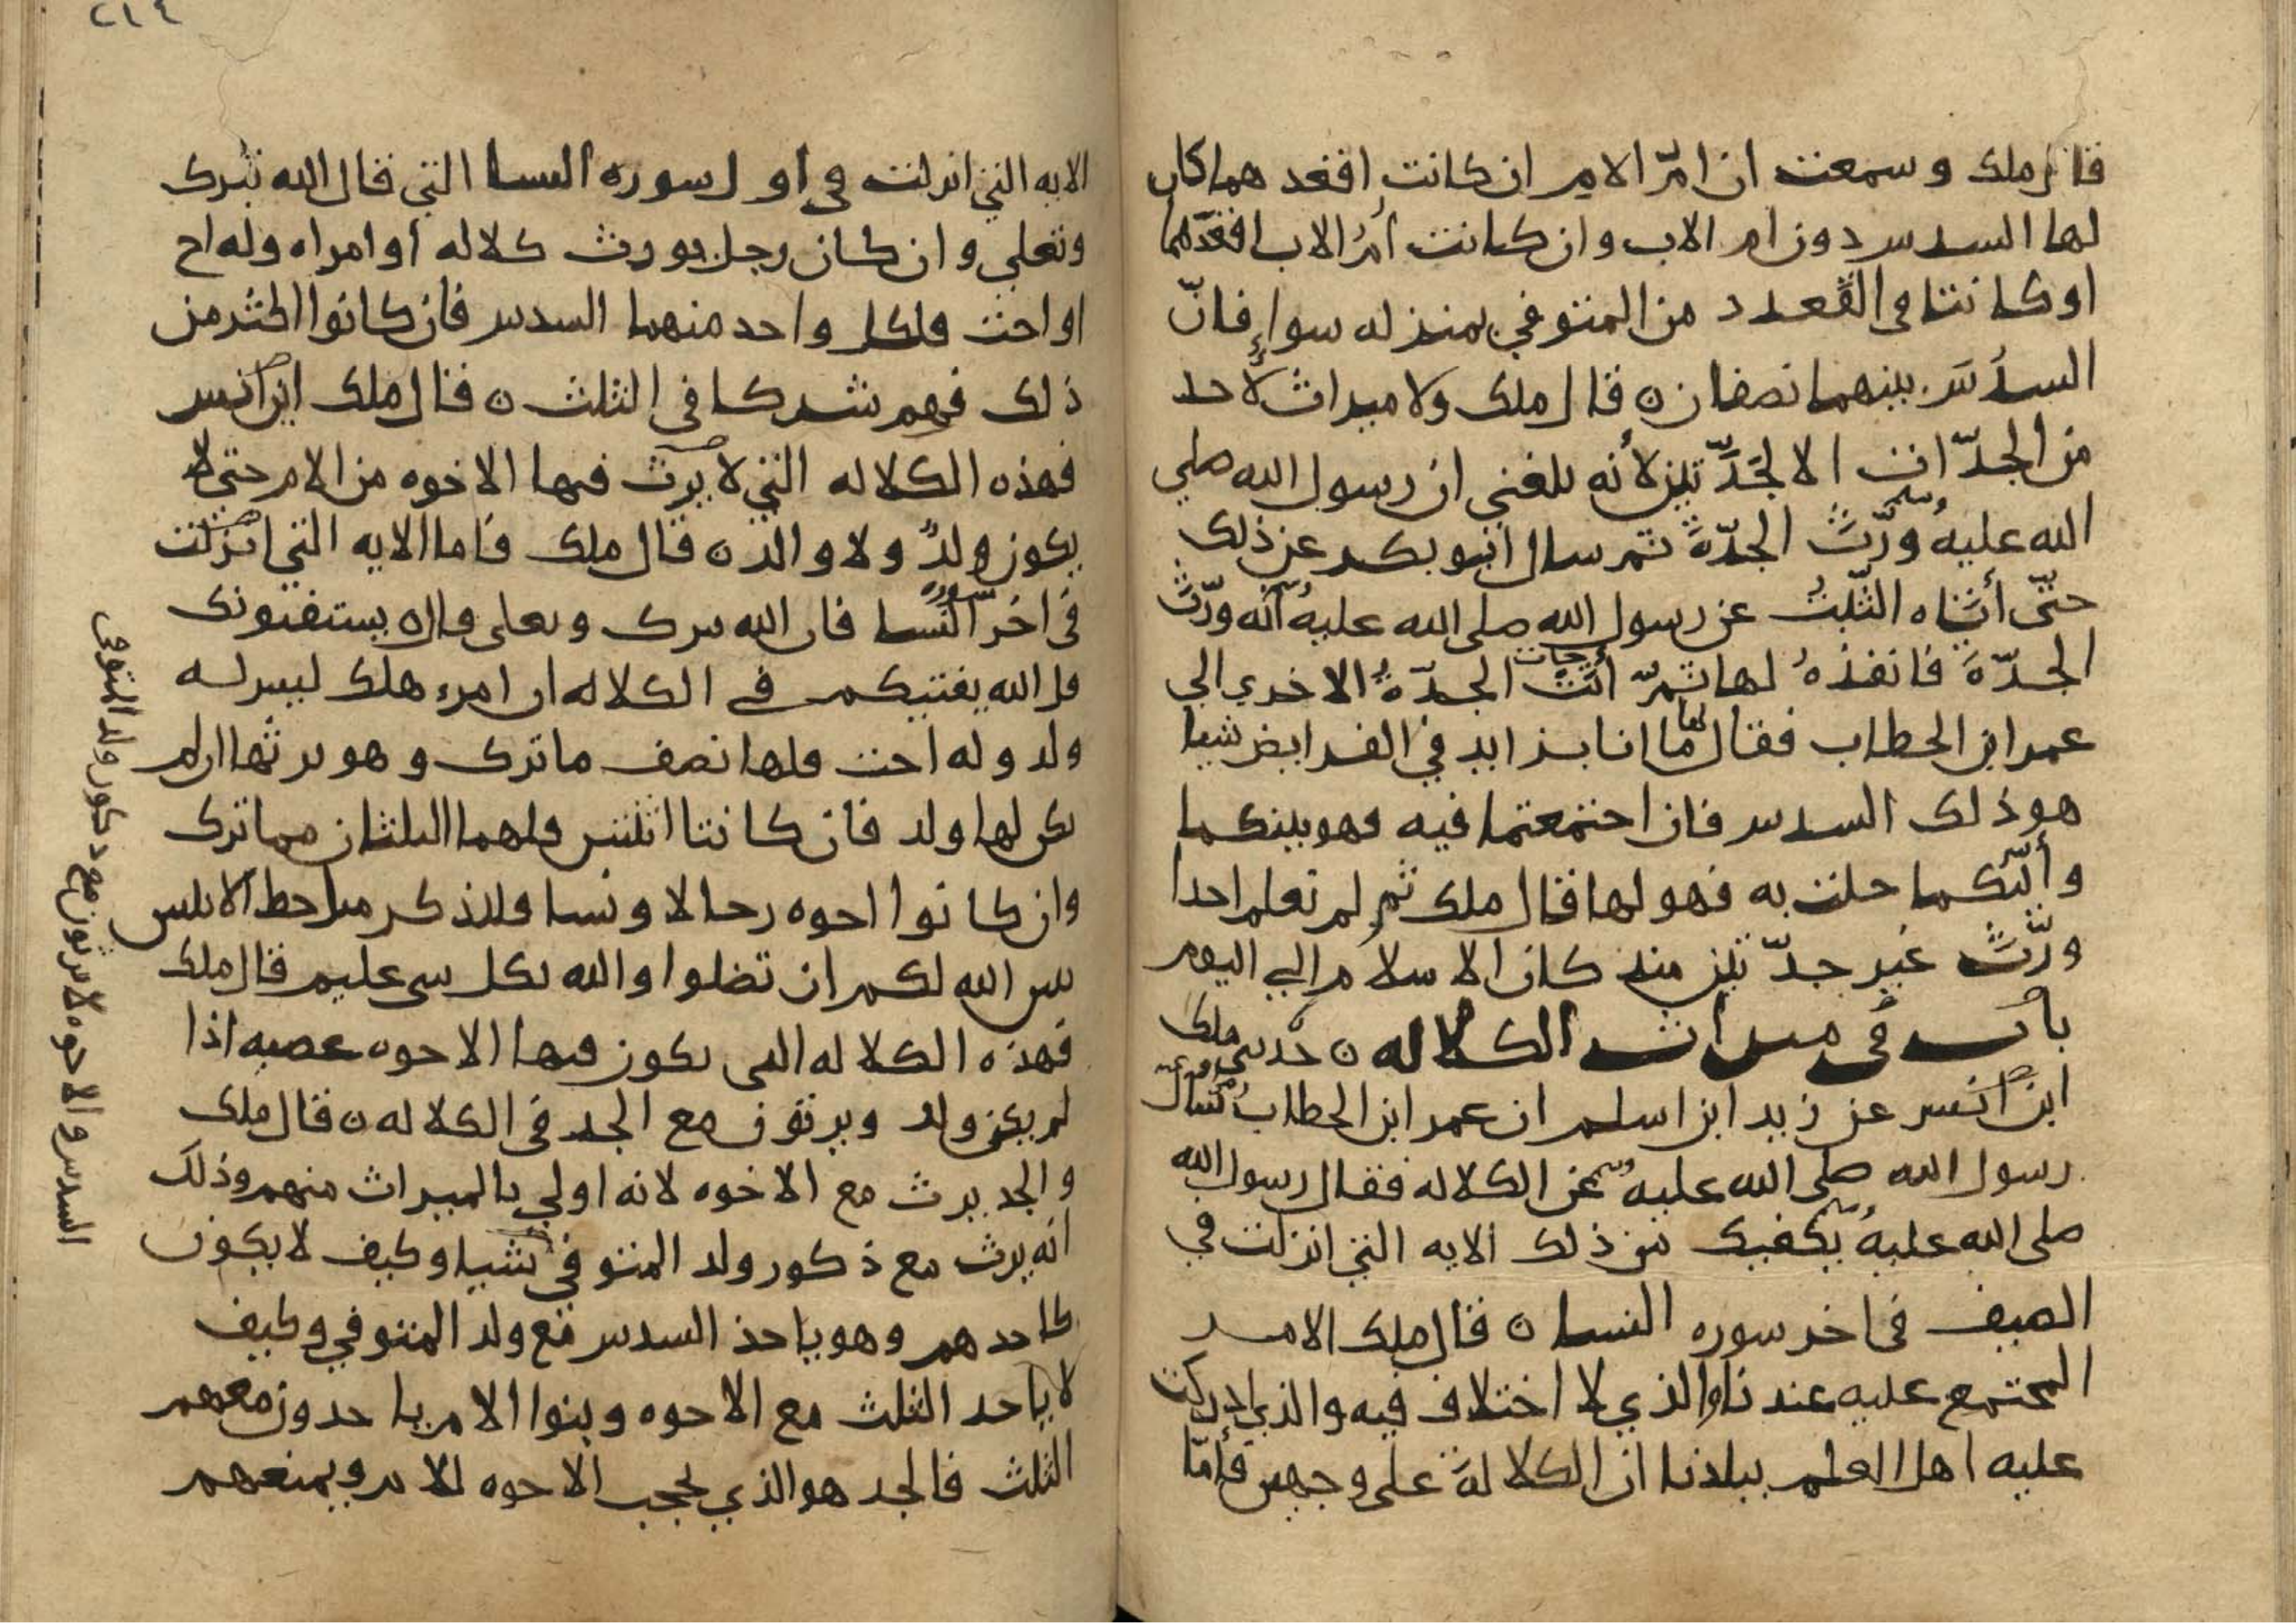 قال ملك وسمعت ان امّ الام ان كانت اقعدهما كان
لها السدس دون ام الاب وان كانت أمُ الاب اقعدهما
او كانتا في القُعدد من المتوفي بمنزله سواءٍ فانّ
السدُسَ بينهما نصفان ٥ قال ملك ولا ميراث لأحد
من الجدّات الا لجَدّتين لأنه بلغني ان رسول الله صلي
الله عليه وسلم ورّثَ الجدّةَ ثم سال ابو بكر عن ذلك
حتّى أتاه الثّبتُ عن رسول الله صلى الله عليه وسلم أنّه ورّث
الجدّةَ فانفذهُ لها ثمّ أتت الجدّةُ الاخرى الي
عمر ابن الخطاب فقال لها ما انا بزايد في الفرايض شيا
هو ذلك السدس فان اجتمعتما فيه فهو بينكما
وأيّتكما خلت به فهو لها قال ملك ثم لم نعلم احدا
ورّثَ غير جدّتين منذ كان الاسلام الي اليوم
باب في ميراث الكلاله ٥ حدثني ملك
ابن انس عن زيد ابن اسلم ان عمر ابن الخطاب سال
رسول الله صلى الله عليه وسلم عن الكلاله فقال رسول الله
صلى الله عليه وسلم يكفيك من ذلك الايه التي انزلت في
الصيف في اخر سوره النسا ٥ قال ملك الامر
المجتمع عليه عندنا والذي لا اختلاف فيه والذي ادركت
عليه اهل العلم ببلدنا ان الكلالةَ على وجهين فأمّا
٢١٤
الايه التي انزلت في اول سوره النسا التي قال الله تبرك
وتعلي وان كان رجل يورث كلاله أو امراه وله اخ
او اخت فلكل واحد منهما السدس فان كانوا اكثر من
ذلك فهم شركا في الثلث ٥ قال ملك ابن انس
فهذه الكلاله التي لا يرث فيها الاخوه من الام حتى لا
يكون ولدٌ ولا والد ٥ قال ملك فاما الايه التي انزلت
في اخر سورة النّسا قال الله تبرك وتعلى يستفتونك
قل الله يفتيكم في الكلاله ان امرء هلك ليس له
ولد وله اخت فلها نصف ما ترك وهو يرثها ان لم
يكن لها ولد فان كانتا اثنتين فلهما الثلثان مما ترك
وان كانوا اخوه رجالا ونسا فللذكر مثل حظ الانثيين
يبين الله لكم ان تضلوا والله بكل شي عليم قال ملك
فهذه الكلاله التي يكون فيها الاخوه عصبه اذا
لم يكن ولد ويرثون مع الجد في الكلاله ٥ قال ملك
والجد يرث مع الاخوه لانه اولي بالميراث منهم وذلك
انه يرث مع ذكور ولد المتوفي شيا وكيف لا يكون
كاحدهم وهو ياخذ السدس مع ولد المتوفي وكيف
لا ياخذ الثلث مع الاخوه وبنوا الام ياخذون معهم
الثلث فالجد هو الذي يحجب الاخوه للام ويمنعهم
السدس والاخوه لا يرثون مع ذكور ولد المتوفى